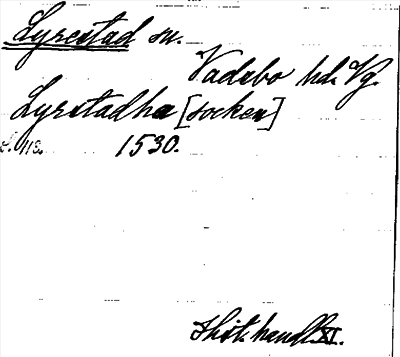 Lyrestad sn.
Vadsbo hd. Vg.
Lyrstadha [socken]
s. 112. 1530.
Hist. handl. XI.